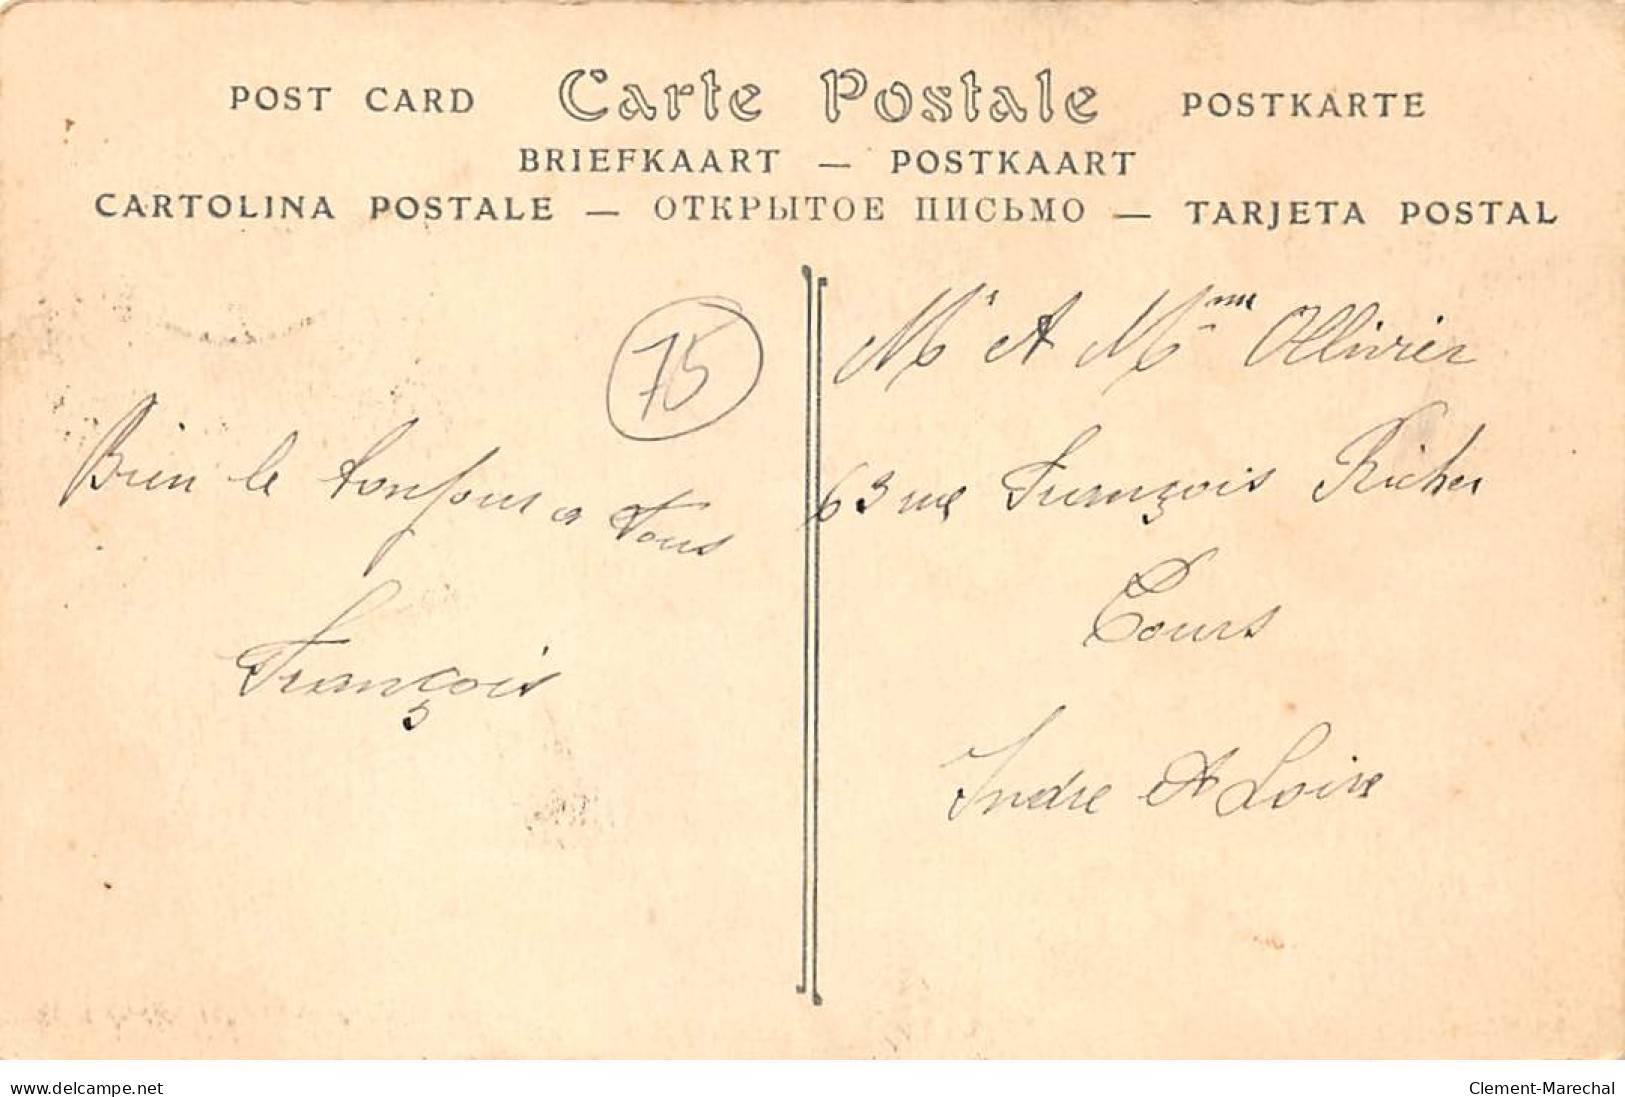 POST CARD Carte Postale POSTKARTE
BRIEFKAART — POSTKAART
CARTOLINA POSTALE — ОТКРЫТОЕ ПИСЬМО — TARJETA POSTAL
75
Bien le bonjour a Vous
François
Mr et Mme Ollivier
63 rue François Richer
Tours
Indre et Loire
www.delcampe.net
Clement-Marechal